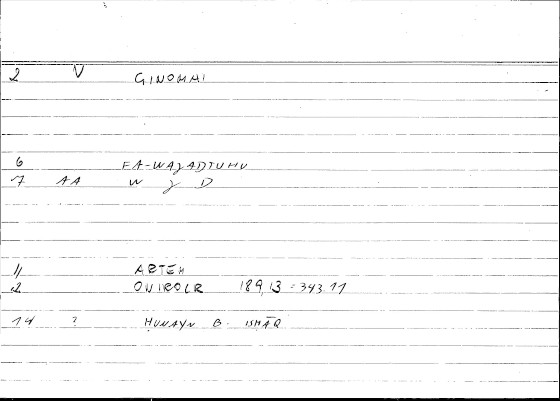 2 V GINOMAI
6 FA-WAJADTUHU
7 AA W J D
11 ARTEM
2 ONIROCR 189,13 = 343.11
14 ? HUNAYN B. ISHĀQ